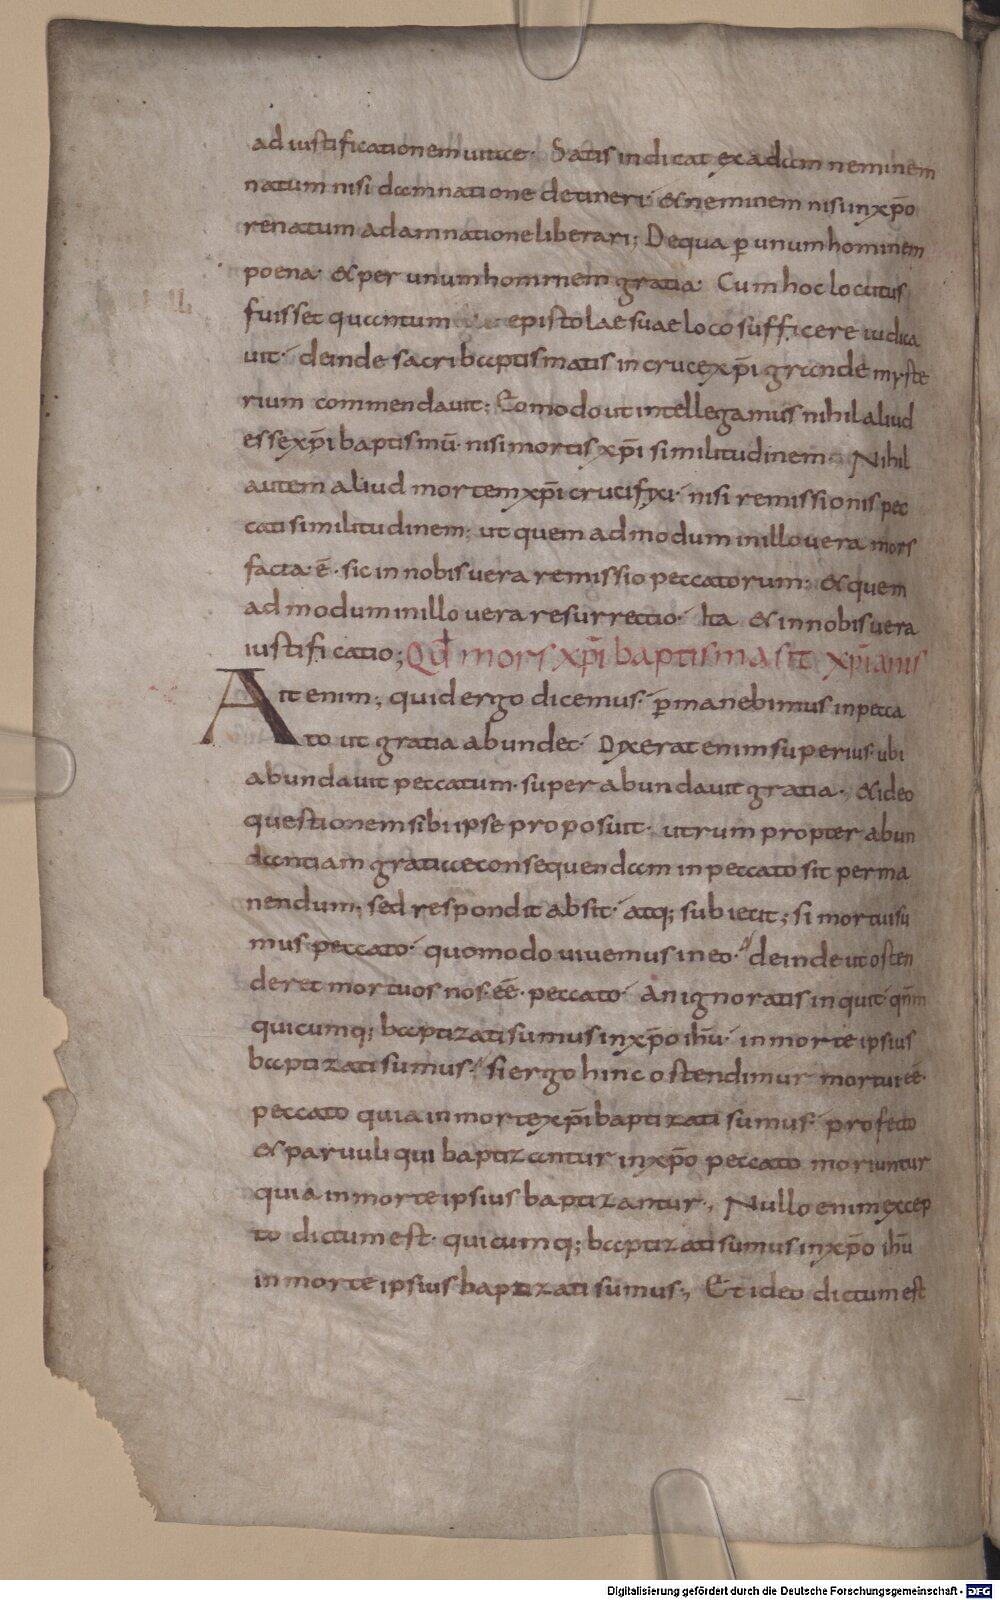 ad iustificationem uitae· Satis indicat ex adam neminem
natum nisi damnatione detineri· & neminem nisi in xp̄o
renatum a damnatione liberari; De qua ꝑ unum hominem
poena· & per unum hominem gratia· Cum hoc locutus
fuisset quantum epistolae suae loco sufficere iudica
uit· deinde sacri baptismatis in cruce xp̄i grande myste
rium commendauit; Eo modo ut intellegamus nihil aliud
esse xp̄i baptismū· nisi mortis xp̄i similitudinem· Nihil
autem aliud mortem xp̄i crucifixi· nisi remissionis pec
cati similitudinem; ut quem ad modum in illo uera mors
facta· ē· sic in nobis uera remissio peccatorum· & quem
ad modum in illo uera resurrectio· Ita & in nobis uera
iustificatio; Qđ mors xp̄i baptisma sit xp̄ianis
Ait enim; quid ergo dicemus· ꝑmanebimus in pecca
to ut gratia abundet· Dixerat enim superius· ubi
abundauit peccatum· super abundauit gratia·, & ideo
questionem sibi ipse proposuit· utrum propter abun
dantiam gratiae consequendam in peccato sit perma
nendum; sed respondit absit· atq; subiecit; si mortui su
mus peccato· quomodo uiuemus in eo· deinde ut osten
deret mortuos nos· eē· peccato· An ignoratis inquit· qnm̄
quicumq; baptizati sumus in xp̄o ihū· in morte ipsius
baptizati sumus· si ergo hinc ostendimur mortui eē·
peccato quia in morte xp̄i baptizati sumus· profecto
& paruuli qui baptizantur in xp̄o peccato moriuntur
quia in morte ipsius baptizantur·, Nullo enim excep
to dictum est· quicumq; baptizati sumus in xp̄o ihū
in morte ipsius baptizati sumus·, Et ideo dictum est
Digitalisierung gefördert durch die Deutsche Forschungsgemeinschaft - DFG